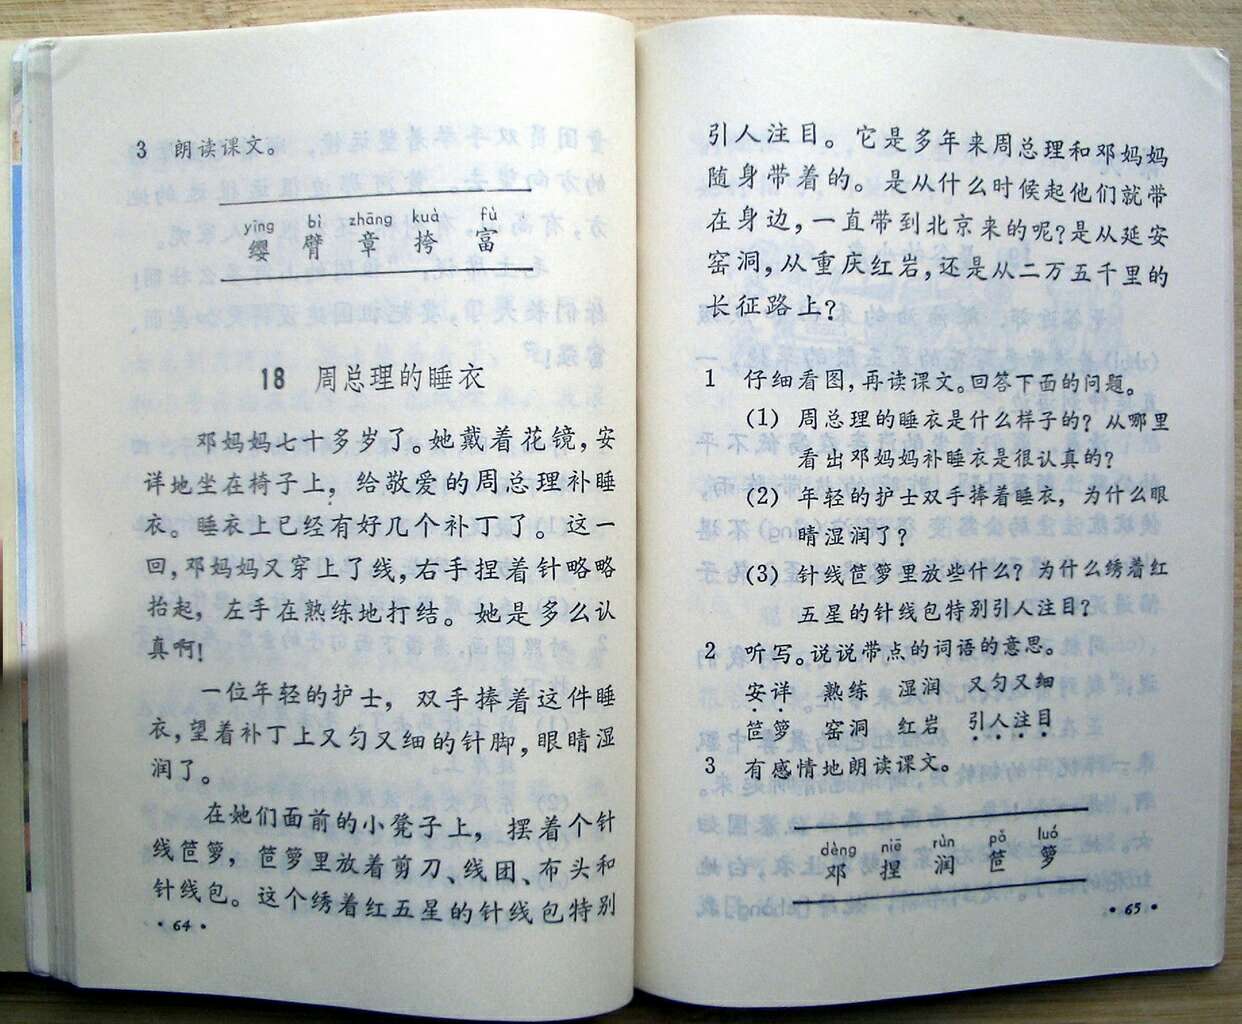 3 朗读课文。
yīng bì zhāng kuà fù
缨 臂 章 挎 富
18 周总理的睡衣
邓妈妈七十多岁了。她戴着花镜,安
详地坐在椅子上,给敬爱的周总理补睡
衣。睡衣上已经有好几个补丁了。这一
回,邓妈妈又穿上了线,右手捏着针略略
抬起,左手在熟练地打结。她是多么认
真啊!
一位年轻的护士,双手捧着这件睡
衣,望着补丁上又匀又细的针脚,眼睛湿
润了。
在她们面前的小凳子上,摆着个针
线笸箩,笸箩里放着剪刀、线团、布头和
针线包。这个绣着红五星的针线包特别
·64·
引人注目。它是多年来周总理和邓妈妈
随身带着的。是从什么时候起他们就带
在身边,一直带到北京来的呢?是从延安
窑洞,从重庆红岩,还是从二万五千里的
长征路上?
1 仔细看图,再读课文。回答下面的问题。
(1) 周总理的睡衣是什么样子的?从哪里
看出邓妈妈补睡衣是很认真的?
(2) 年轻的护士双手捧着睡衣,为什么眼
睛湿润了?
(3) 针线笸箩里放些什么?为什么绣着红
五星的针线包特别引人注目?
2 听写。说说带点的词语的意思。
安详 熟练 湿润 又匀又细
笸箩 窑洞 红岩 引人注目
3 有感情地朗读课文。
dèng niē rùn pǒ luó
邓 捏 润 笸 箩
·65·